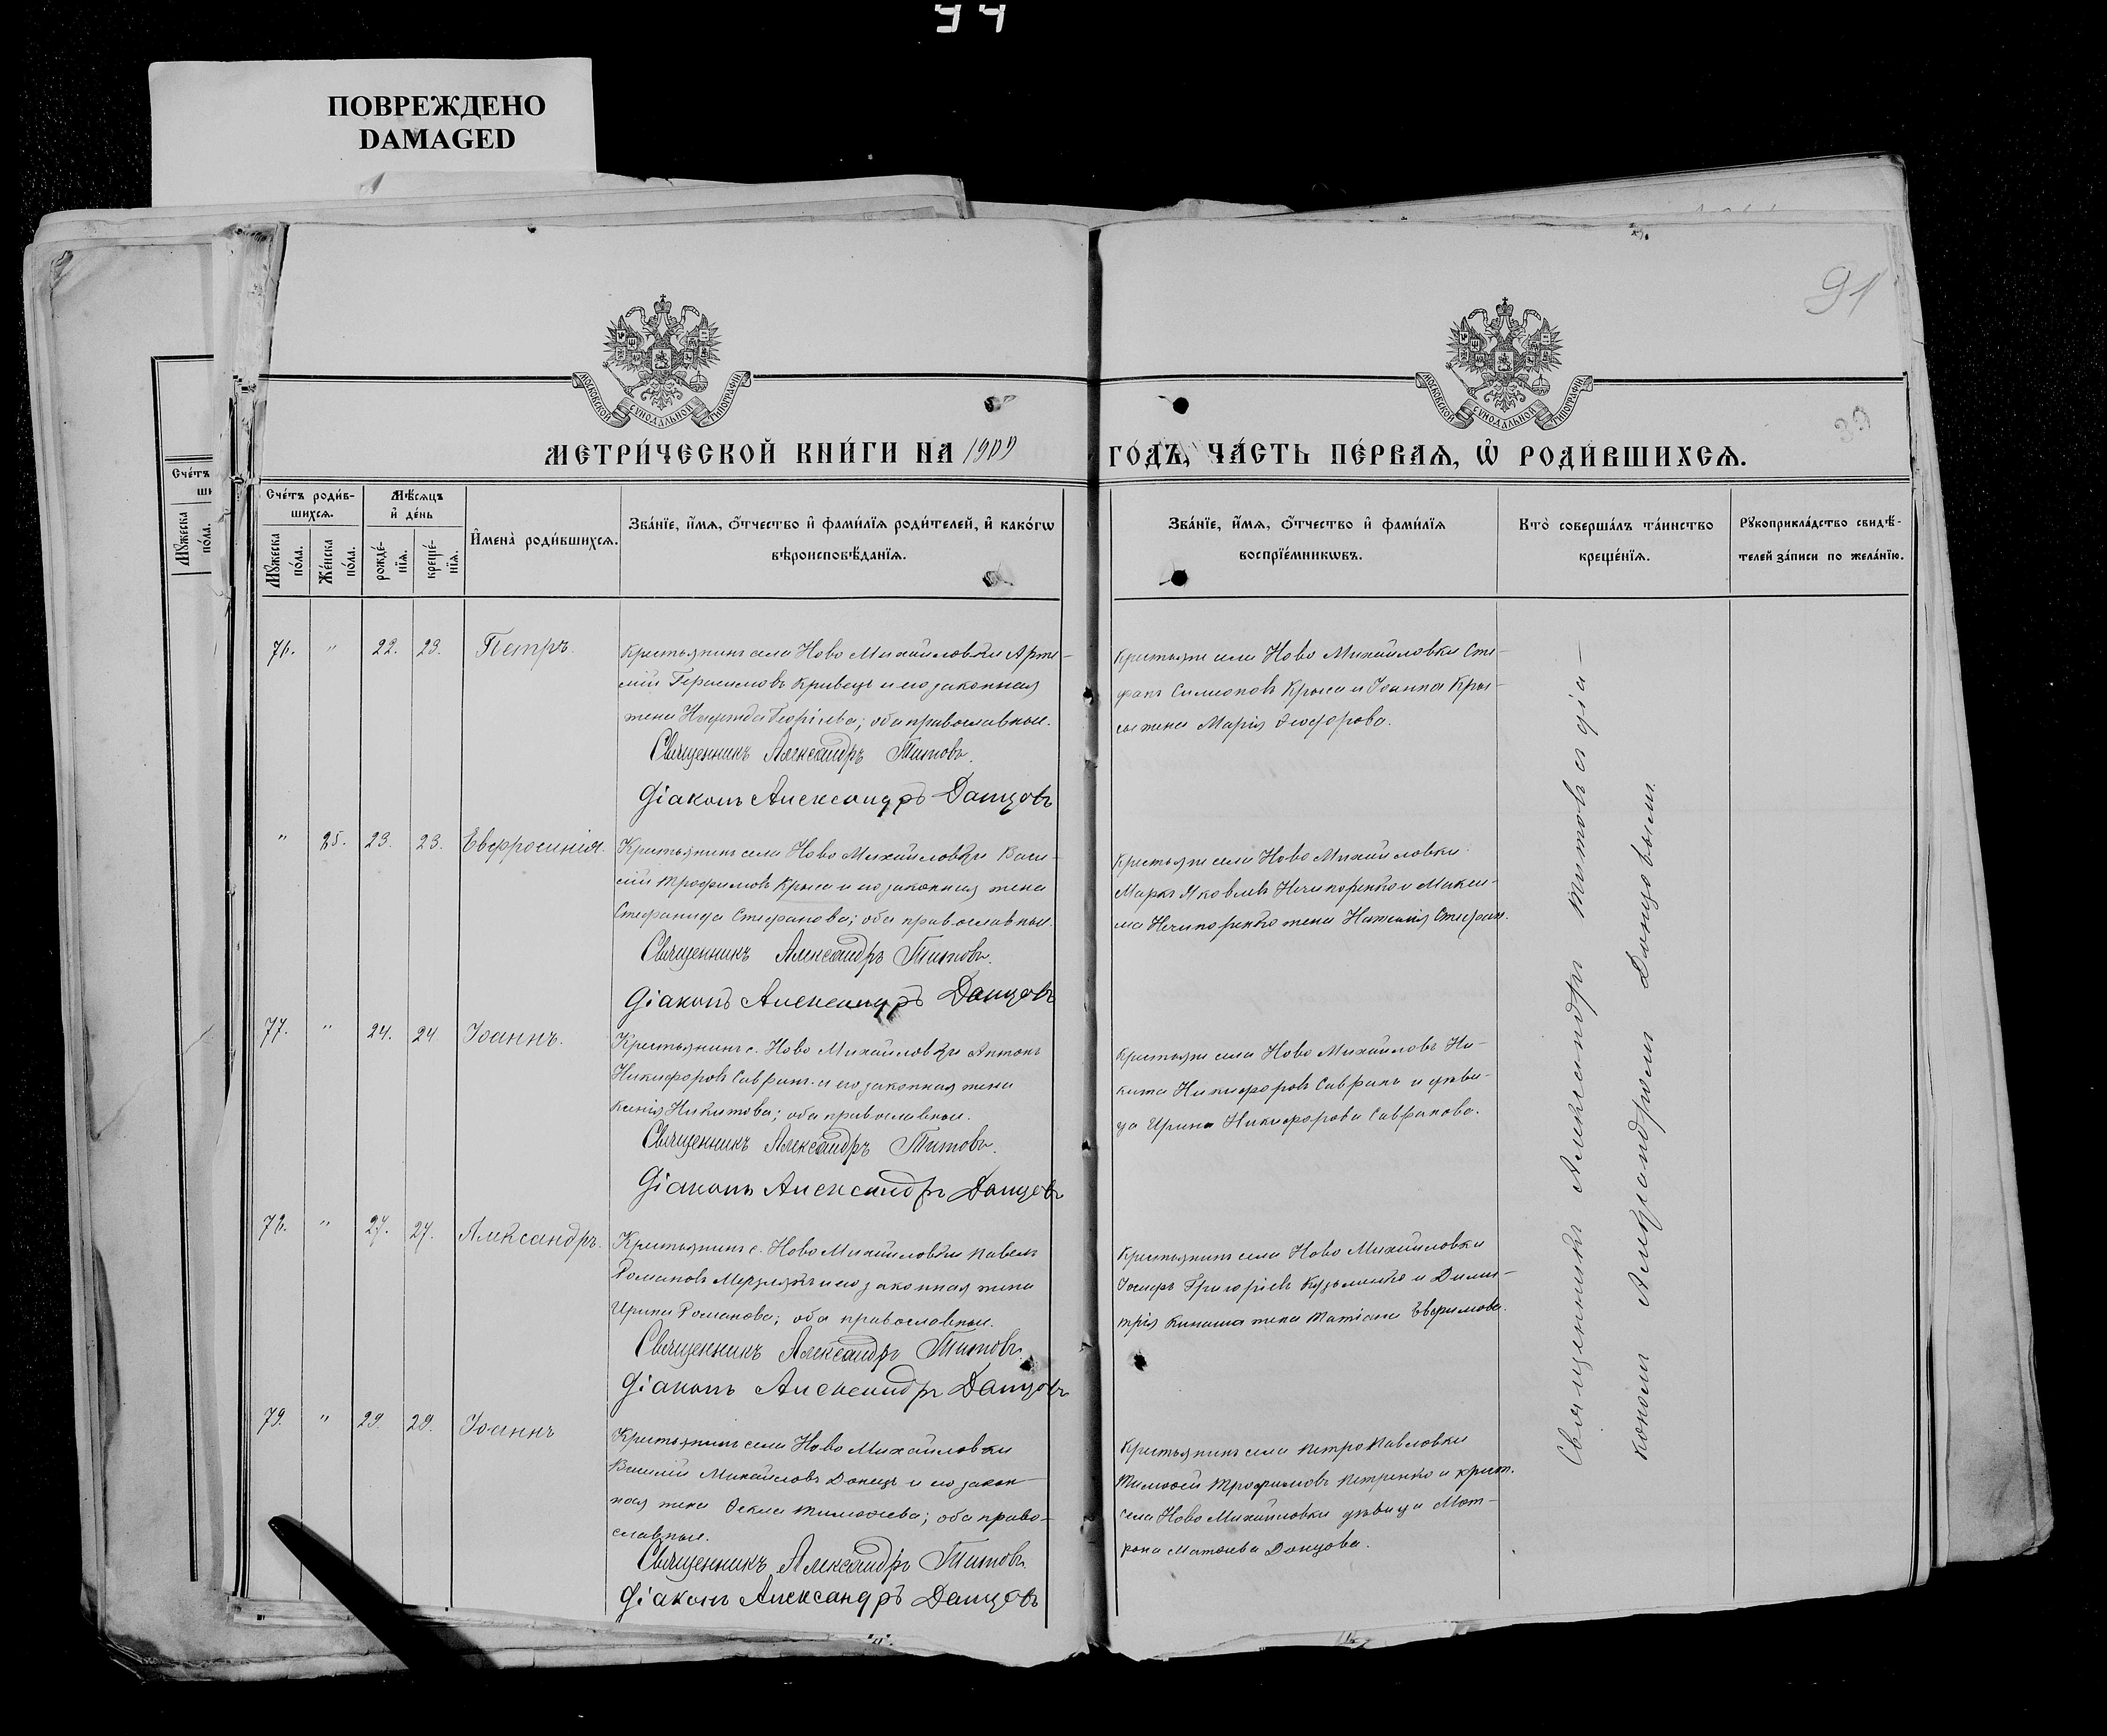 94
ПОВРЕЖДЕНО
DAMAGED
91
39
МОСКОВСКОЙ СѴНОДАЛЬНОЙ ТИПОГРАФІИ
МОСКОВСКОЙ СѴНОДАЛЬНОЙ ТИПОГРАФІИ
МЕТРИ́ЧЕСКОЙ КНИ́ГИ НА 1909
ГОДЪ, ЧА́СТЬ ПЕ́РВАѦ, Ѡ҆ РОДИ́ВШИХСѦ.
Сче́тъ
ши
Мꙋжеска по́ла.
Сче́тъ роди́в-
шихсѧ.
Мꙋжеска по́ла.
Же́нска по́ла.
Мѣ́сѧцъ
и҆ де́нь
рожде́-
нїѧ.
креще́-
нїѧ.
И҆мена̀ роди́вшихсѧ.
Зва́нїе, и҆́мѧ, ѻ҆́тчество и҆ фами́лїѧ роди́телей, и҆ како́гѡ
вѣроисповѣ́данїѧ.
Зва́нїе, и҆́мѧ, ѻ҆́тчество и҆ фами́лїѧ
воспрїе́мникѡвъ.
Кто̀ соверша́лъ та́инство
креще́нїѧ.
Рꙋкоприкла́дство свидѣ́-
телей за́писи по жела́нїю.
76. " 22. 23. Петръ.
Крестьянинъ села Ново Михайловки Арте-
мій Герасимовъ Кривецъ и его законная
жена Надежда Георгіева; оба православные.
Священникъ Александръ Титовъ.
Діаконъ Александръ Данцовъ
Крестьяне села Ново Михайловки Сте-
фанъ Симеоновъ Крыса и Іоанна Кры-
сы жена Марія Ѳеодорова.
" 25. 23. 23. Евфросинія.
Крестьянинъ села Ново Михайловки Васи-
лій Трофимовъ Крыса и его законная жена
Стефанида Стефанова; оба православные.
Священникъ Александръ Титовъ.
Діаконъ Александръ Данцовъ
Крестьяне села Ново Михайловки
Маркъ Яковлевъ Нечипоренко и Макси-
ма Нечипоренко жена Наталія Стефан.
77. " 24. 24. Іоаннъ.
Крестьянинъ с. Ново Михайловки Антонъ
Никифоровъ Савранъ и его законная жена
Ксенія Никитова; оба православные.
Священникъ Александръ Титовъ.
Діаконъ Александръ Данцовъ
Крестьяне села Ново Михайловки Ни-
кита Никифоровъ Савранъ и дѣви-
ца Ирина Никифорова Савранова.
78. " 27. 27. Александръ.
Крестьянинъ с. Ново Михайловки Павелъ
Романовъ Мерзлякъ и его законная жена
Ирина Романова; оба православные.
Священникъ Александръ Титовъ.
Діаконъ Александръ Данцовъ
Крестьянинъ села Ново Михайловки
Іосифъ Григоріевъ Кузьменко и Дими-
трія Кинаша жена Татіана Евфимова.
79. " 29. 29. Іоаннъ
Крестьянинъ села Ново Михайловки
Василій Михайловъ Донецъ и его закон-
ная жена Ѳекла Тимоѳеева; оба право-
славные.
Священникъ Александръ Титовъ.
Діаконъ Александръ Данцовъ
Крестьянинъ села Петропавловки
Тимоѳей Трофимовъ Петренко и крест.
села Ново Михайловки дѣвица Мат-
рона Матѳеева Донцова.
Священникъ Александръ Титовъ съ діа-
кономъ Александромъ Донцовымъ.